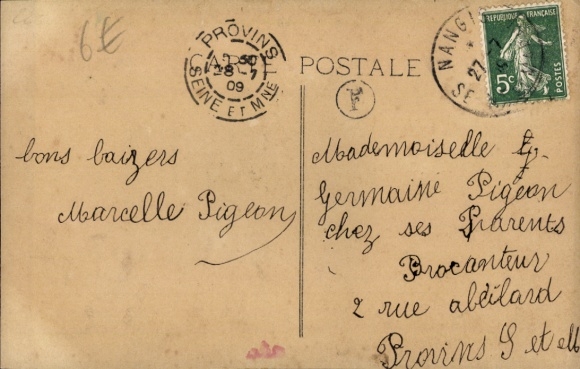 6€
PROVINS
8 30
28 -7
09
SEINE ET MNE
CARTE POSTALE
NANGI
27 -7
SE
RÉPUBLIQUE FRANÇAISE
5c
POSTES
bons baizers
Marcelle Pigeon
Mademoiselle G.
Germaine Pigeon
chez ses Parents
Brocanteur
2 rue abéilard
Provins S et M